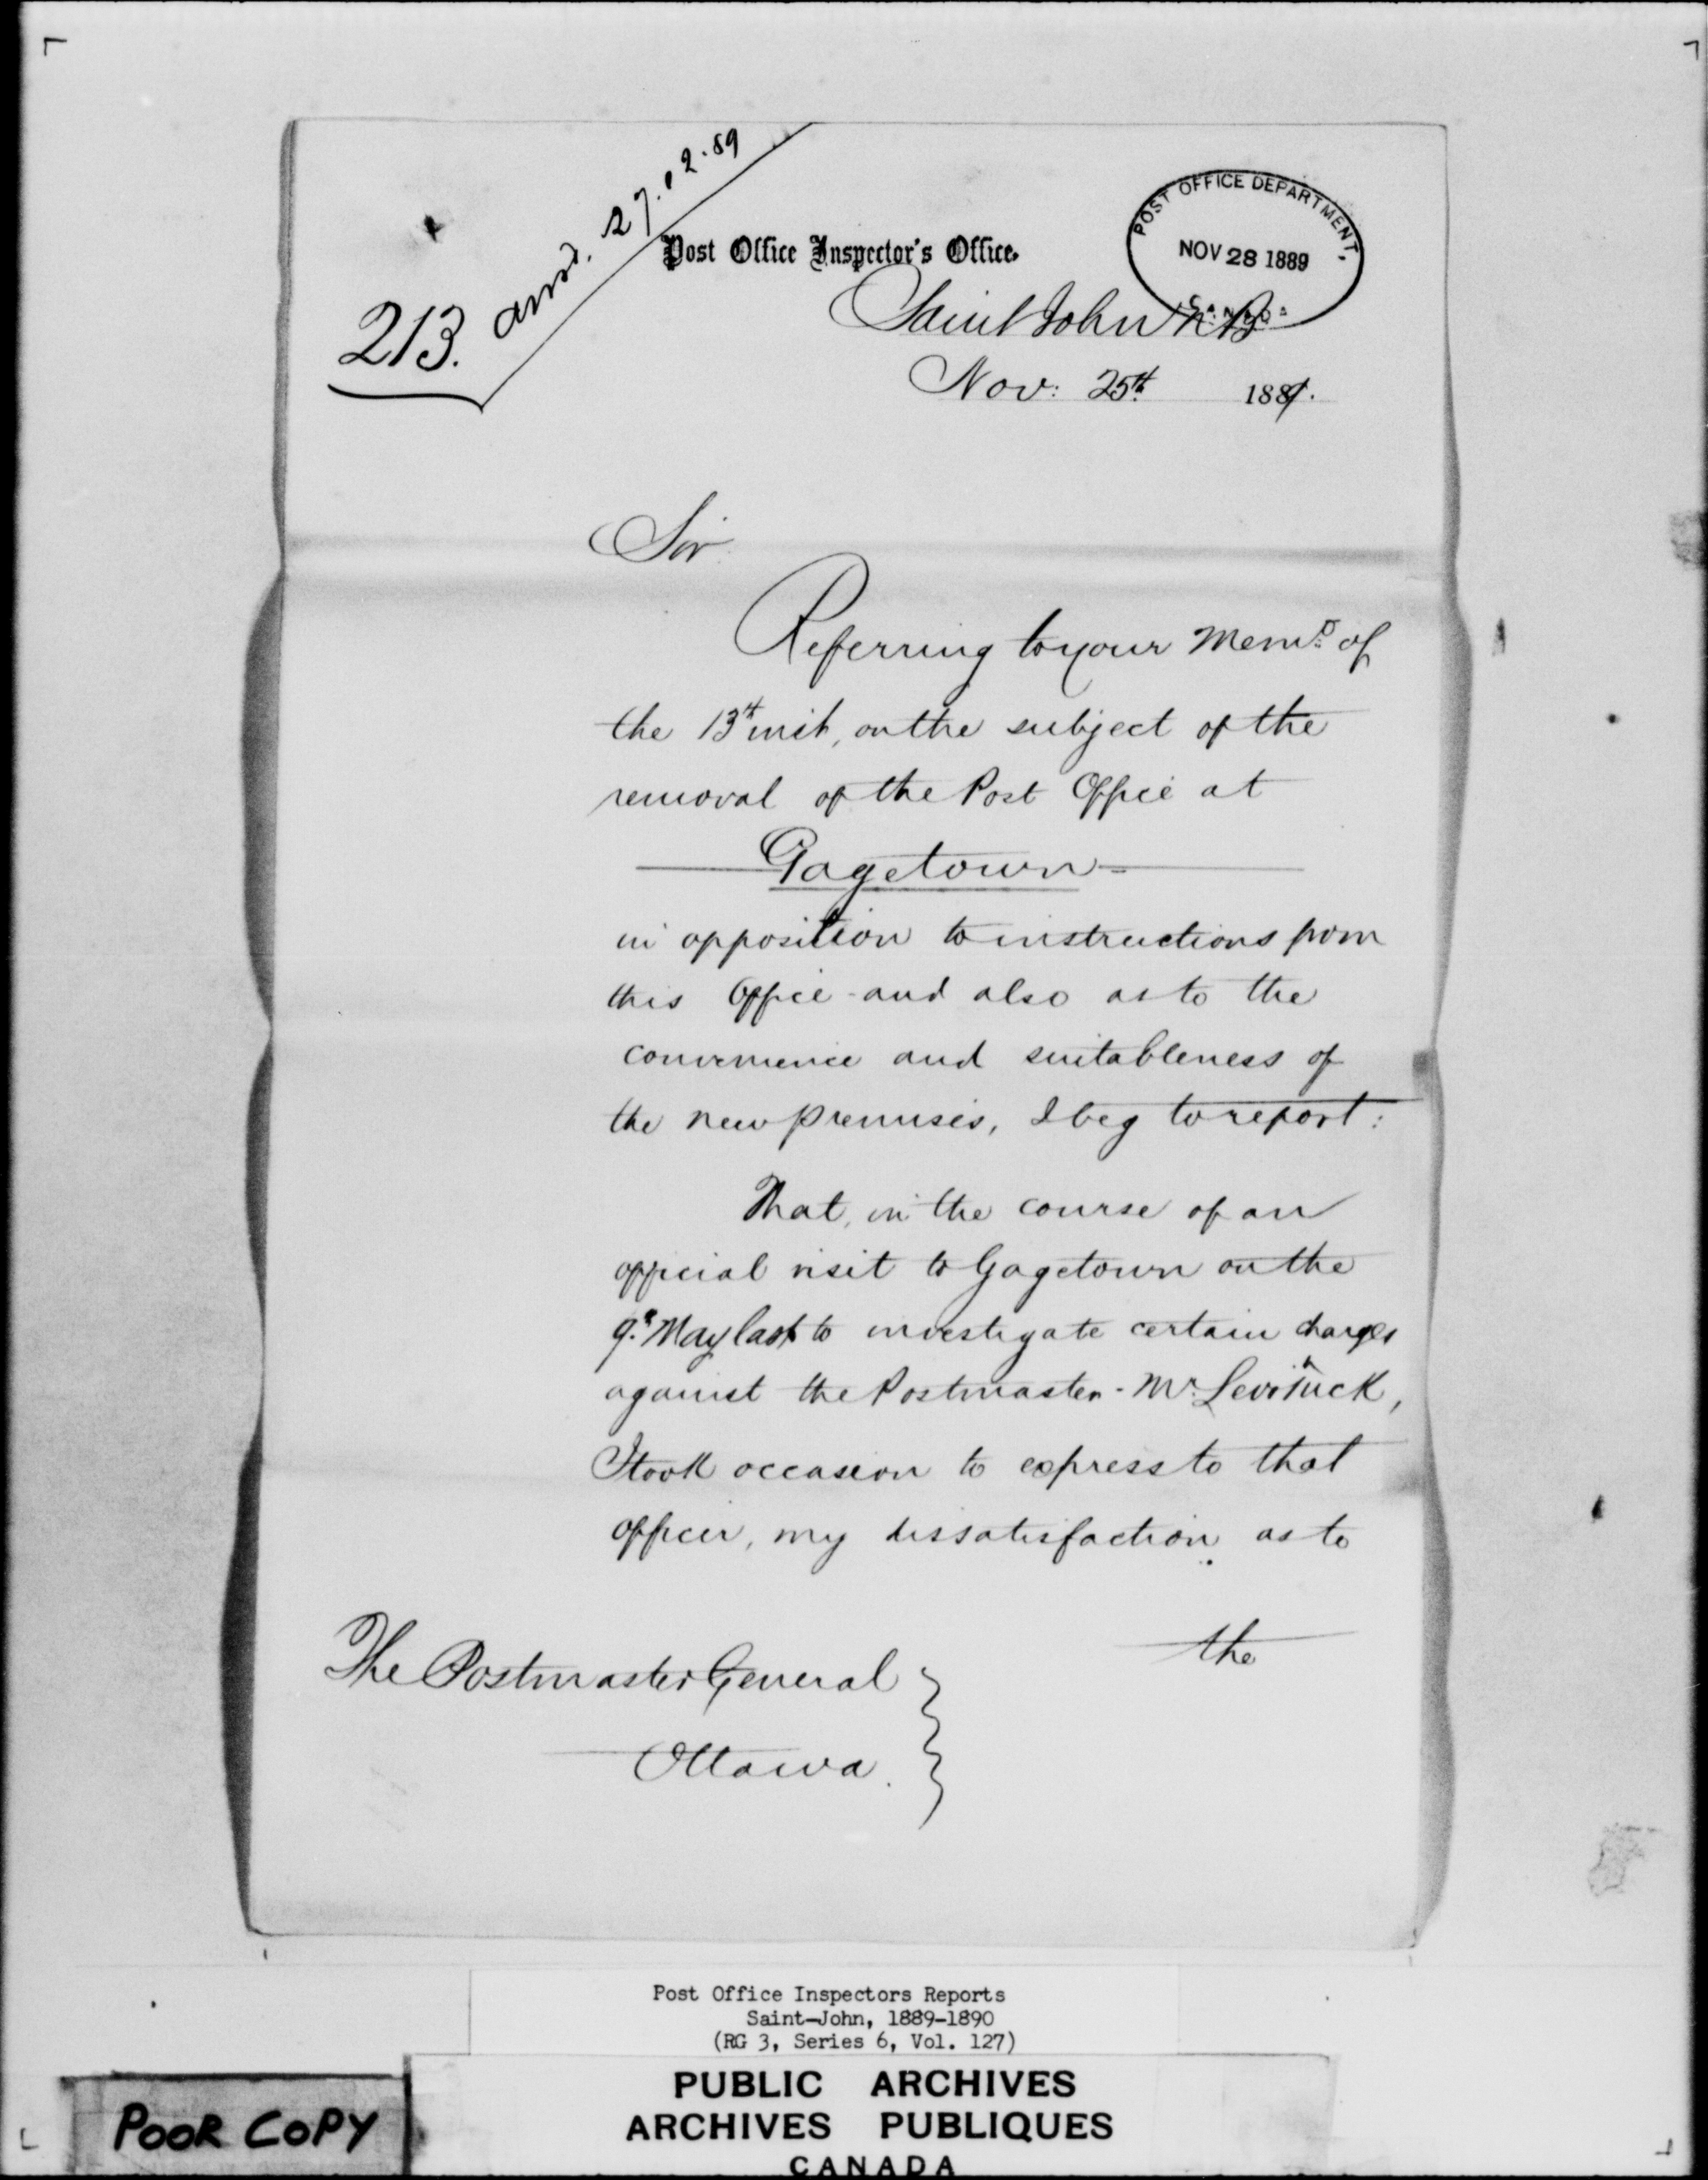 213. ansd. 27.12.89
Post Office Inspector's Office.
POST OFFICE DEPARTMENT,
NOV 28 1889
CANADA
Saint John NB
Nov: 25th 1889.
Sir
Referring to your Memo. of
the 13th inst, on the subject of the
removal of the Post Office at
Gagetown
in opposition to instructions from
this Office - and also as to the
convenience and suitableness of
the new premises, I beg to report:
That, in the course of an
official visit to Gagetown on the
9th May last to investigate certain charges
against the Postmaster - Mr. Levi
I took occasion to express to that
officer, my dissatisfaction as to
the
The Postmaster General
Ottawa.
Post Office Inspectors Reports
Saint-John, 1889-1890
(RG 3, Series 6, Vol. 127)
PUBLIC ARCHIVES
ARCHIVES PUBLIQUES
CANADA
POOR COPY